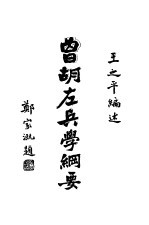 王之平編述
曾胡左兵學綱要
鄭家泓題